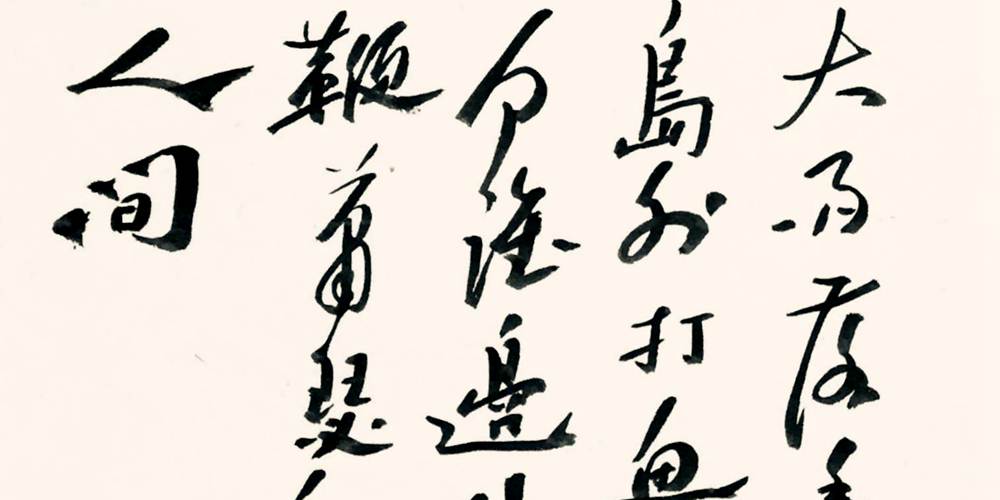 大雨落
島外打魚
向誰邊
鞭蕭瑟
人間